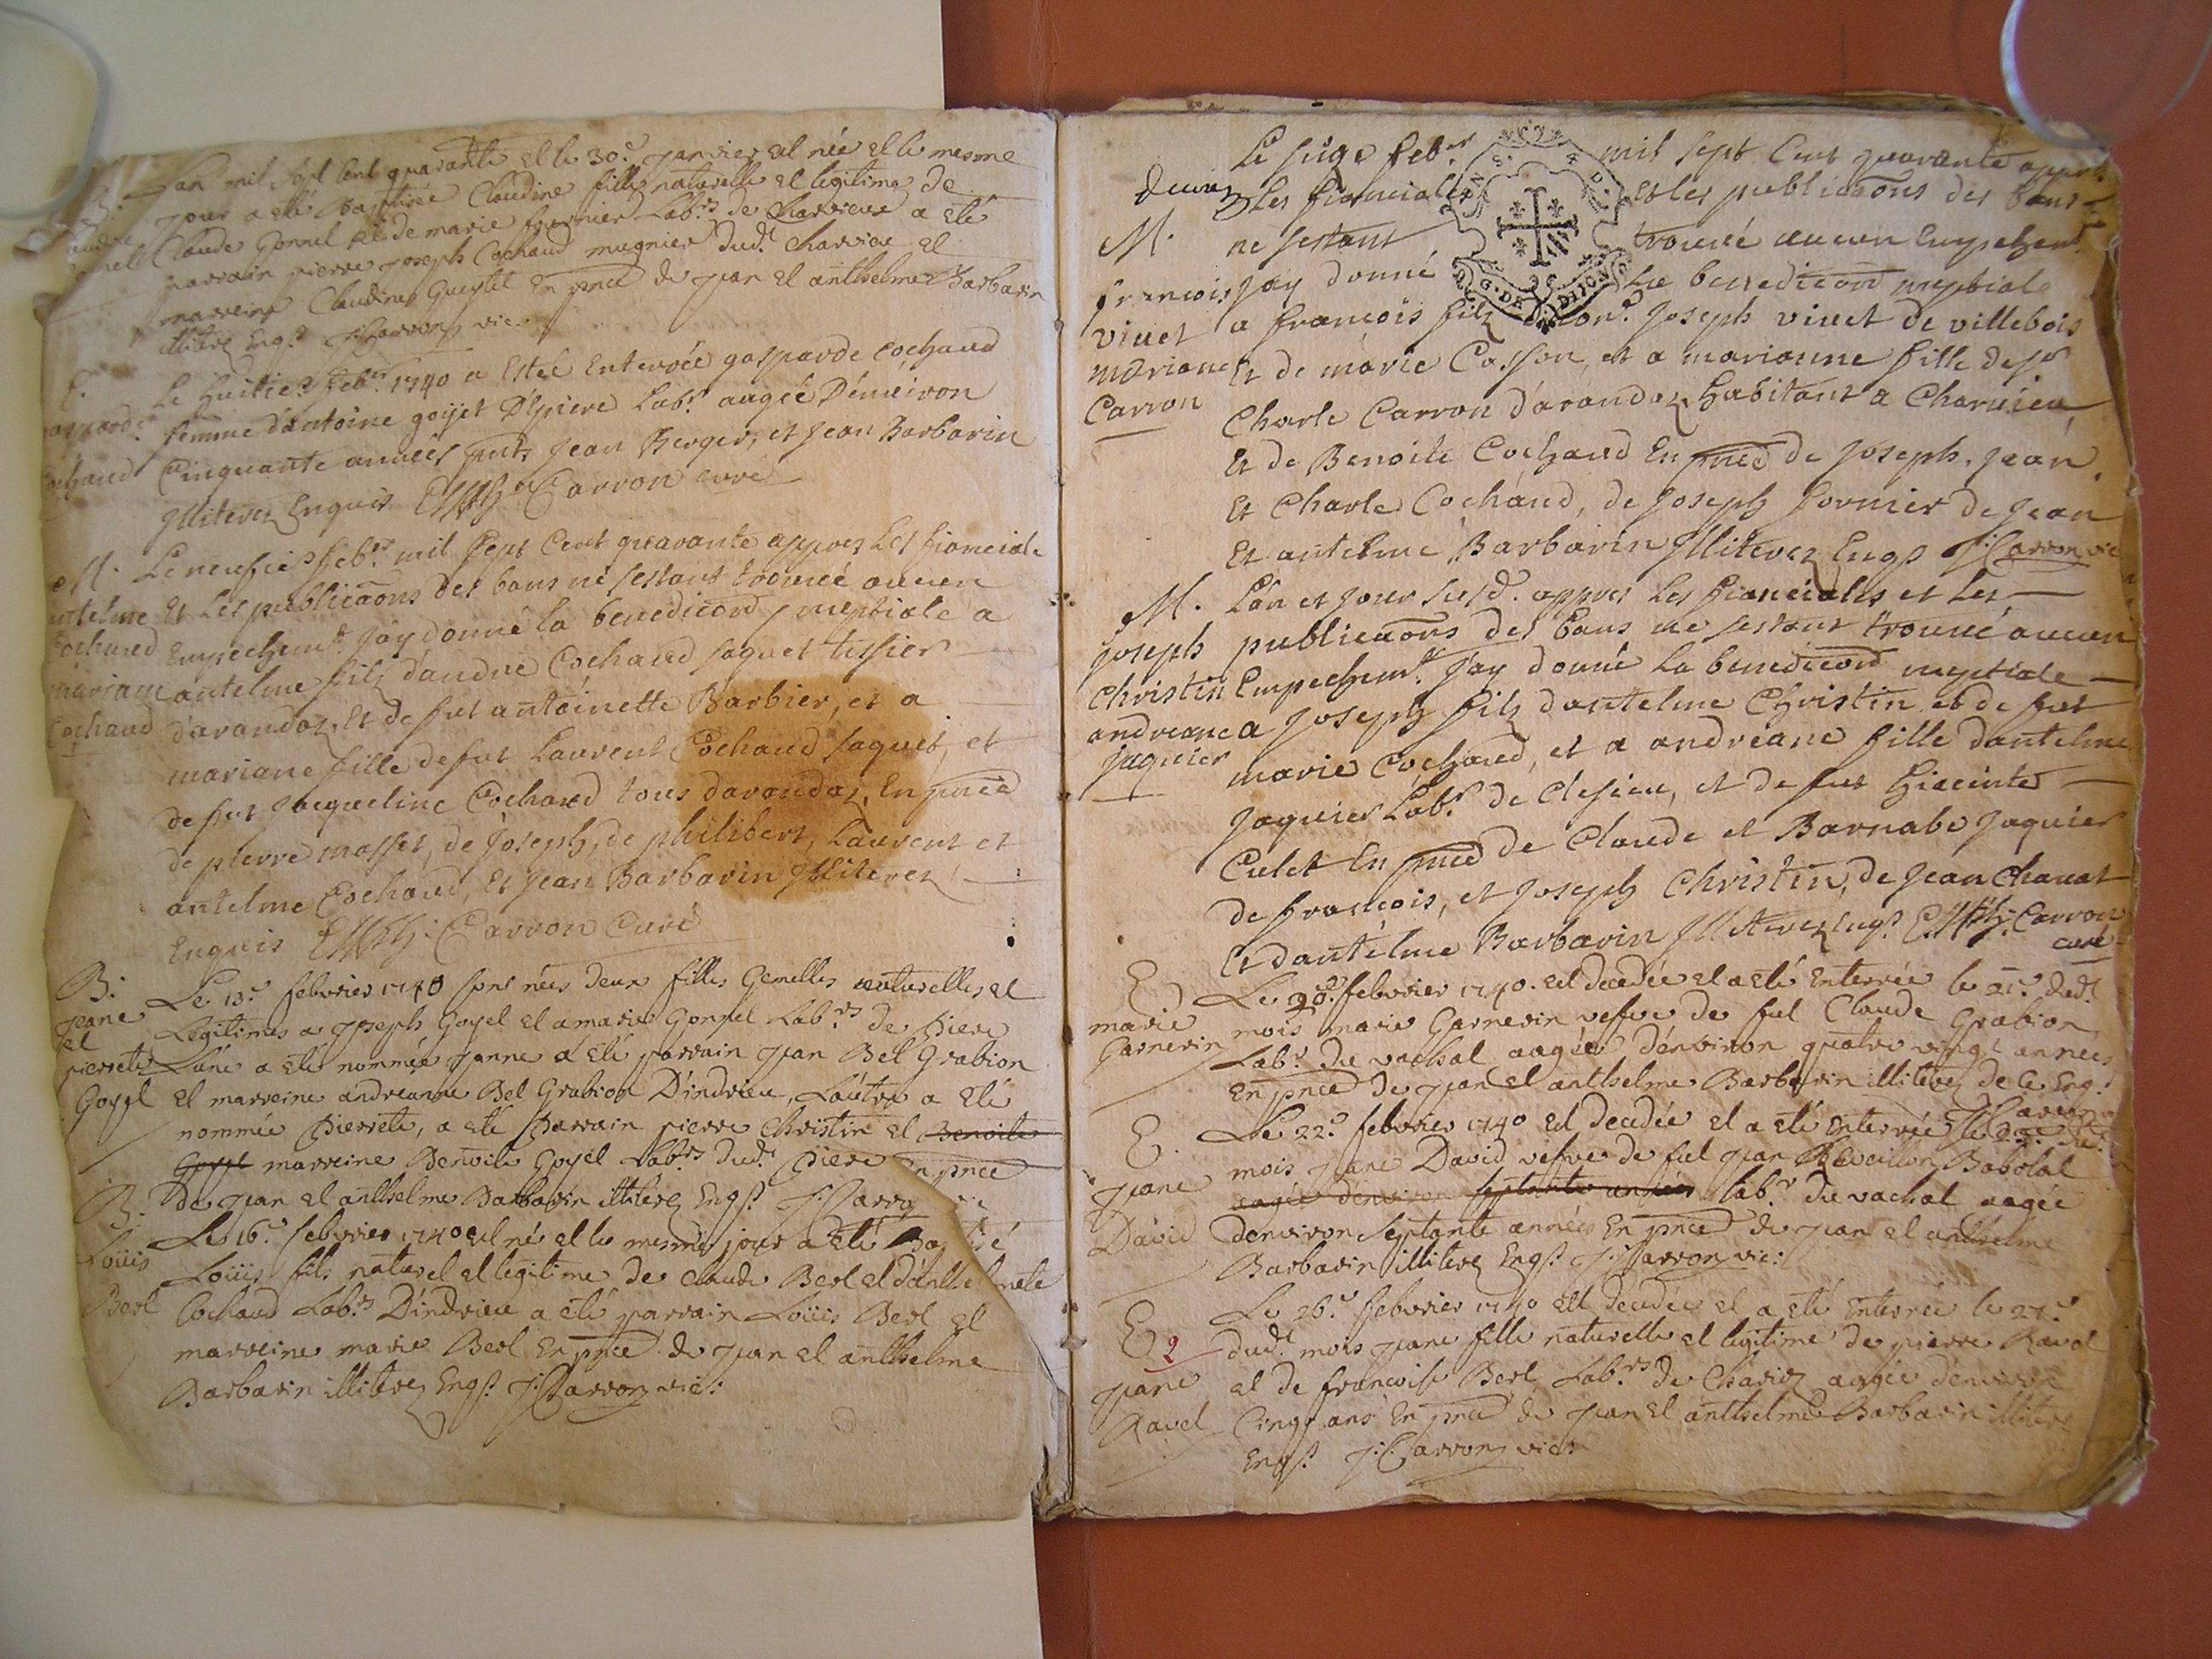 B. L'an mil sept cent quarante et le 30.e janvier est née et le mesme
jour a esté baptisée Claudine fille naturelle et legitime de
Claude Gonnel et de marie fournier Lab.rs de Charvieux a été
parrain pierre joseph Cochaud mugnier dud.t Charvieu et
marreine Claudine Guytet En pnce de jean et anthelme Barbarin
illiterez Enq.s J: Carron vic:
E. Le huitie.e feb.r 1740 a Estéé Enterrée gasparde cochaud
femme d'antoine goijet D'piere Lab.r aagéé D'enuiron
Cochaud Cinquante années pnts Jean Berger, et Jean Barbarin
Jlliterez Enquis Carron curé
M. Le neufie.e feb.r mil Sept Cent quarante appres Les fianciale
antelme Et Les publicaõns des bans ne sestant trouuéé aucun
Cochaud Empechem.t Jay donné la benedicõn nuptiale a
mariane antelme filz d'andné Cochaud saquet tissier
Cochaud d'arandaz, Et de fut antoinette Barbier, et a
mariane fille de fut Laurent Cochaud saquet, et
de fut Jacqueline Cochaud tous darandaz, En pnce
de pierre masset, de Joseph, de philibert, Laurent et
antelme Cochaud, Et Jean Barbarin Jlliterez
Enquis Carron Curé
B: Le 13.e febvrier 1740 sont nées deux filles Gemelles naturelles et
jeane Legitimes a joseph Goyet et a marie Gonnel Lab.rs de Piere
et
pierrete L'une a été nommée janne a été parrain jean Bel Grabion
Goyet et marreine andreanne Bel Grabion D'indrieu, L'autre a été
nommée Pierrete, a été Parrain pierre Christin et Benoite
Goyet marreine Benoite Goyet Lab.rs dud.t Piere En pnce
de jean et anthelme Barbarin illiterez Enq.s J: Carron
B: Le 16.e febvrier 1740 est né et le mesme jour a été Bap
Loüis Loüis fils naturel et legitime de claude Berl et d'anthelmete
Berl Cochaud Lab.rs D'indrieu a été parrain Loüis Berl et
marreine marie Berl En pnce de jean et anthelme
Barbarin illiterez Enq.s J: Carron vic:
Le feb.r mil sept Cent quarante appres
Les fianciales Et les publicaõns des bans
M. ne sestant trouuéé aucun Empechem.t
francois Jay donné La benedicõn nuptiale
viuet a francois filz Joseph viuet de villebois
mariane Et de marie Casson, et a marianne fille de s.r
Carron Charle Carron d'arandaz habitant a Charuieu
Et de Benoite Cochaud En pnce de Joseph. Jean
Et Charle Cochaud, de Joseph fornier de Jean
Et antelme Barbarin Jlliterez Enqs J: Carron vic
M. L'an et jour susd. appres les fiancialls et les
joseph publicaõns des bans ne sestant trouué aucun
christin Empechem.t J'ay donné la benedicõn nuptiale
andreane a Joseph filz dantelme Christin et de fut
jaquier marie Cochaud, et a andréane fille dantelme
Jaquier Lab.r de Clesieu, et de fut hiacinte
Culet En pnce de Claude et Barnabe Jaquier
de francois, et Joseph Christin, de Jean Chauat
Et dantelme Barbarin Jlliterez Enq.s Carron
curé
E Le 20.e febvrier 1740. est decedée et a été Enterrée le 21.e dud.t
marie mois marie Garnerin vefve de fut Claude Grabion
Garnerin Lab.r du vachat aagée d'environ quatre vingt années
En pnce de jean et anthelme Barbarin illiterez de ce Enq.s
J: Carron
E. Le 22.e febvrier 1740 est decedée et a été Enterrée le 23.e du.t
jeane mois jeane David vefve de fut jean Reveillon Babolat
aagée d'environ septante années Lab.r du vachat aagée
David denviron Septante années En pnce de jean et anthelme
Barbarin illiterez Enq.s J: Carron vic:
E 2 Le 26.e febvrier 1740 est decedée et a été Enterrée le 27.e
dud.t mois jeane fille naturelle et legitime de pierre Ravel
jeane et de francoise Berl Lab.rs de Chariz aagée d'environ
Ravel Cinq ans En pnce de jean et anthelme Barbarin illiterez
Enq.s J: Carron vic:
G. DE DIJON